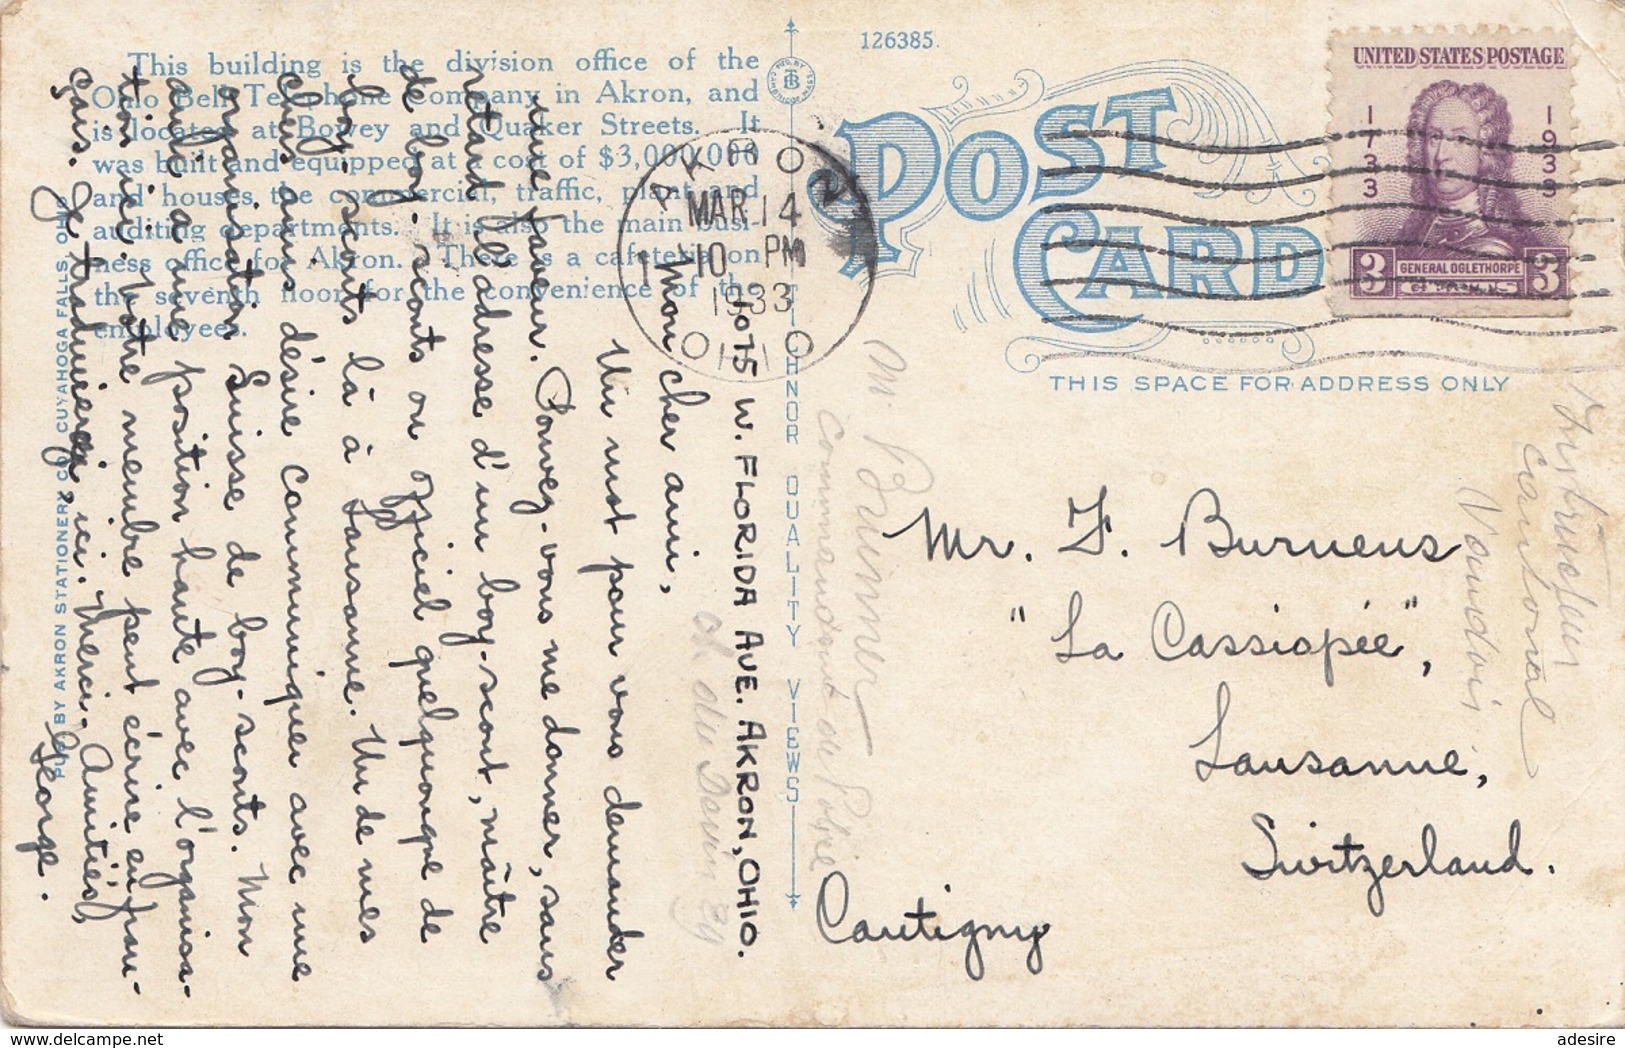 This building is the division office of the
Ohio Bell Telephone Company in Akron, and
is located at Bowey and Quaker Streets. It
was built and equipped at a cost of $3,000,000
and houses the commercial, traffic, plant and
auditing departments. It is also the main busi-
ness office for Akron. There is a cafeteria on
the seventh floor for the convenience of the
employees.
PUB. BY AKRON STATIONERY CO. CUYAHOGA FALLS, OHIO
1075 W. FLORIDA AVE. AKRON, OHIO.
Mon cher ami,
Un mot pour vous demander
une faveur. Pouvez-vous me donner, sans
retard l'adresse d'un boy-scout, maître
de boy-scouts ou officiel quelquonque de
boy-scouts là à Lausanne. Un de mes
chers amis désire communiquer avec une
organisation Suisse de boy-scouts. Mon
ami a une position haute avec l'organisa-
tion ici. Votre membre peut écrire en fran-
çais. Je traduirerai, ici. Merci. Amitiés,
George.
TICHNOR QUALITY VIEWS
126385.
POST
CARD
THIS SPACE FOR ADDRESS ONLY
AKRON
MAR 14
10 PM
1933
OHIO
UNITED STATES POSTAGE
1733 1933
GENERAL OGLETHORPE
3 CENTS 3
Mr. F. Burnens
"La Cassiopée",
Lausanne,
Switzerland.
Cautigny
M. Brunner
commandant de Police
ch. du Levin 29
Instructeur
cantonal
Vaudois
adesire